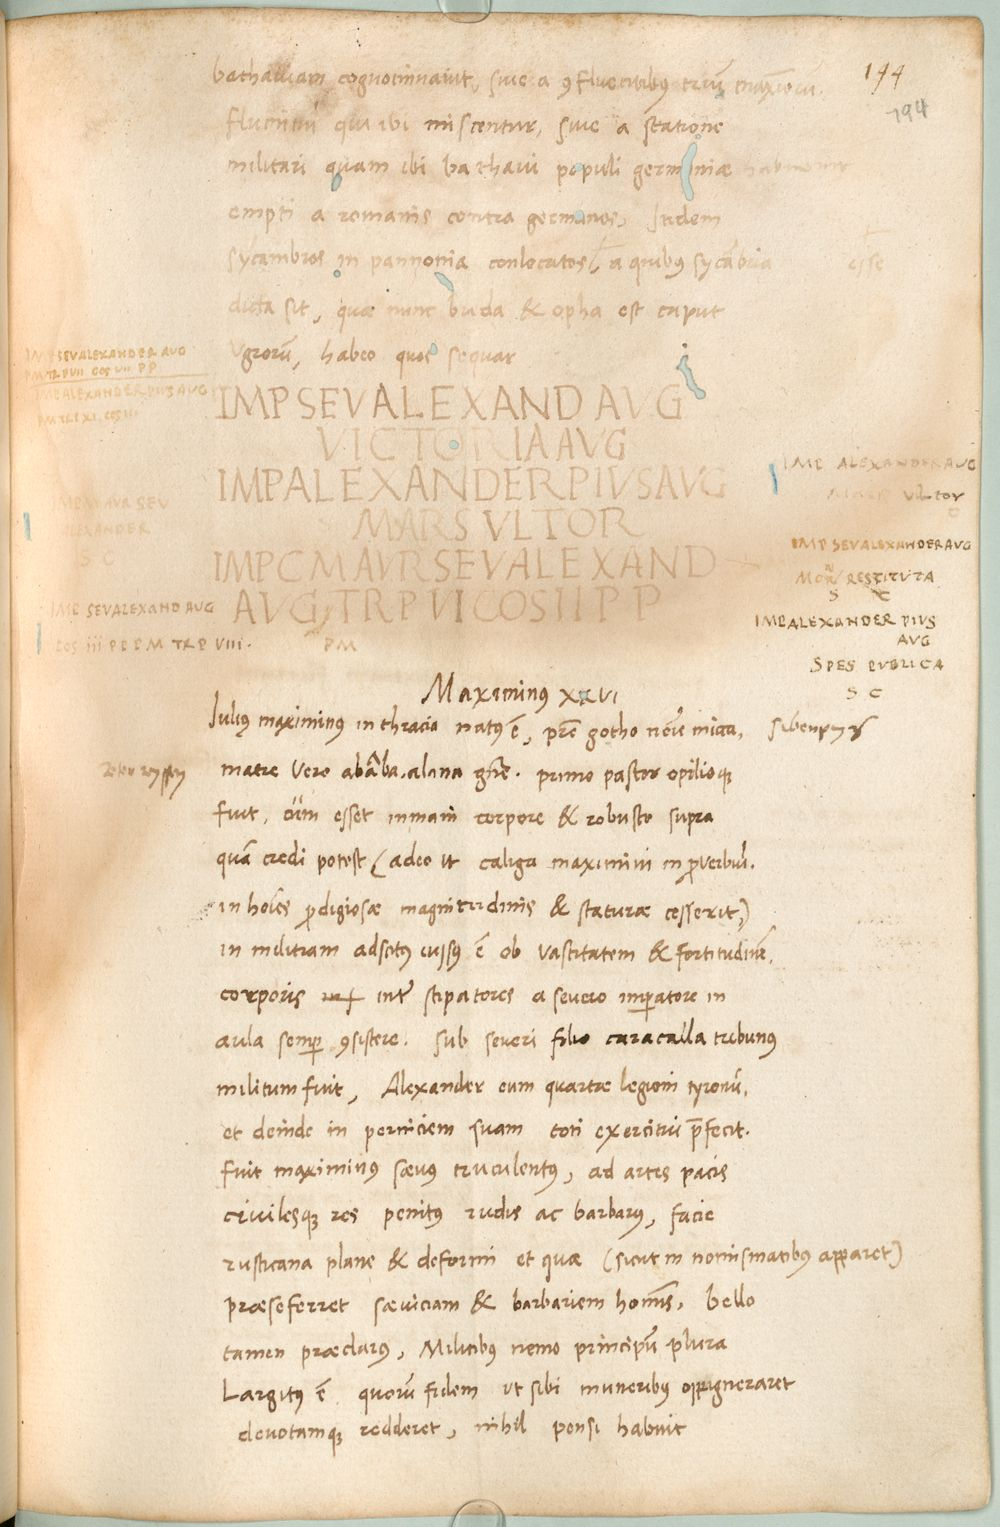 194
194
bathaviam cognominavit, sive a ꝯfluentibus triū maxim
fluminū qui ibi miscentur, sive a statione
militari quam ibi bathavi populi germaniæ habuerunt
empti a romanis contra germanos, Itidem
sycambros in pannonia conlocatos, a quibus sycābria esse
dicta sit, quæ nunc buda & opha est caput
Vgrorū, habeo quos sequar
IMP SEVALEXANDER AVG
P M TR P VII COS VII P P
IMP ALEXANDER PIVS AVG
P M TR P XI COS III
IMP SEV ALEXAND AVG
VICTORIA AVG
IMP ALEXANDER PIVS AVG
MARS VLTOR
IMP C M AVR SEV ALEXAND
AVG, TR P VI COS II P P
P M
IMP M AVR SEV
ALEXANDER
S C
IMP SEVALEXAND AVG
COS III P P P M TR P VIII.
IMP ALEXANDER AVG
MARS Vltor
IMP SEVALEXANDER AVG
RESTITVTA
S C
IMP ALEXANDER PIVS
AVG
SPES PVBLICA
S C
Maximinus XXVI
Iuliꝰ maximinus in thracia natꝰ ē, pr̄e gotho nōīe micca,
matre Vero abāba alana gn̄e. primo pastor opilioqꝫ
fuit, cūm esset inmani corpore & robusto supra
quā credi potest (adeo ut caliga maximini in ꝓverbiū.
in hoīes ꝓdigiosæ magnitudinis & staturæ cesserit,)
in militiam adscitꝰ iussꝰ ē ob vastitatem & fortitudinē,
corporis int̄ stipatores a severo imꝑatore in
aula semꝑ ꝯsistere. Sub severi filio caracalla tribunꝰ
militum fuit, Alexander eum quartæ legioni tyronū,
et deinde in perniciem suam toti exercitui p̄fecit.
fuit maximinꝰ sævꝰ truculentꝰ, ad artes pacis
civilesqꝫ res penitꝰ rudis ac barbarꝰ, facie
rusticana plane & deformi et quæ (sicut in nomismatibꝰ apparet)
præseferret sæviciam & barbariem hoīnis, bello
tamen præclarꝰ, Militibꝰ nemo principū plura
Largitꝰ ē quorū fidem ut sibi muneribꝰ oppigneraret
devotamqꝫ redderet, nihil pensi habuit